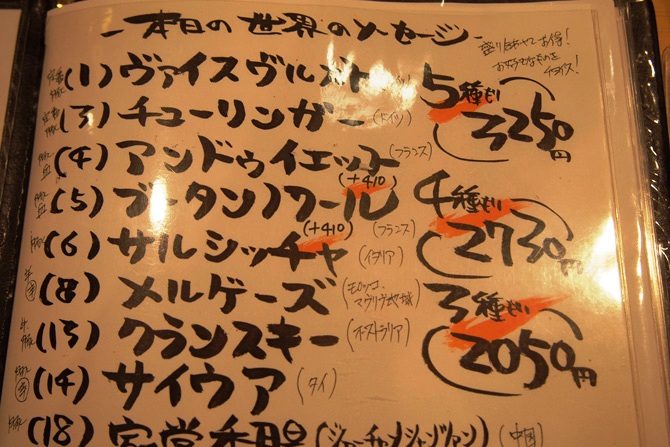 本日の世界のソーセージ
盛り合わせでお得!
お好きなものを
チョイス!
(1) ヴァイスヴルスト
(3) チューリンガー (ドイツ)
(4) アンドゥイエット (フランス)
(5) ブータンノワール (+410) (フランス)
(6) サルシッチャ (+410) (イタリア)
(8) メルゲーズ (モロッコ、マグリブ地域)
(13) クランスキー (オーストラリア)
(14) サイウア (タイ)
(18) 家常香腸 (中国)
5種盛り
3250円
4種盛り
2730円
3種盛り
2050円